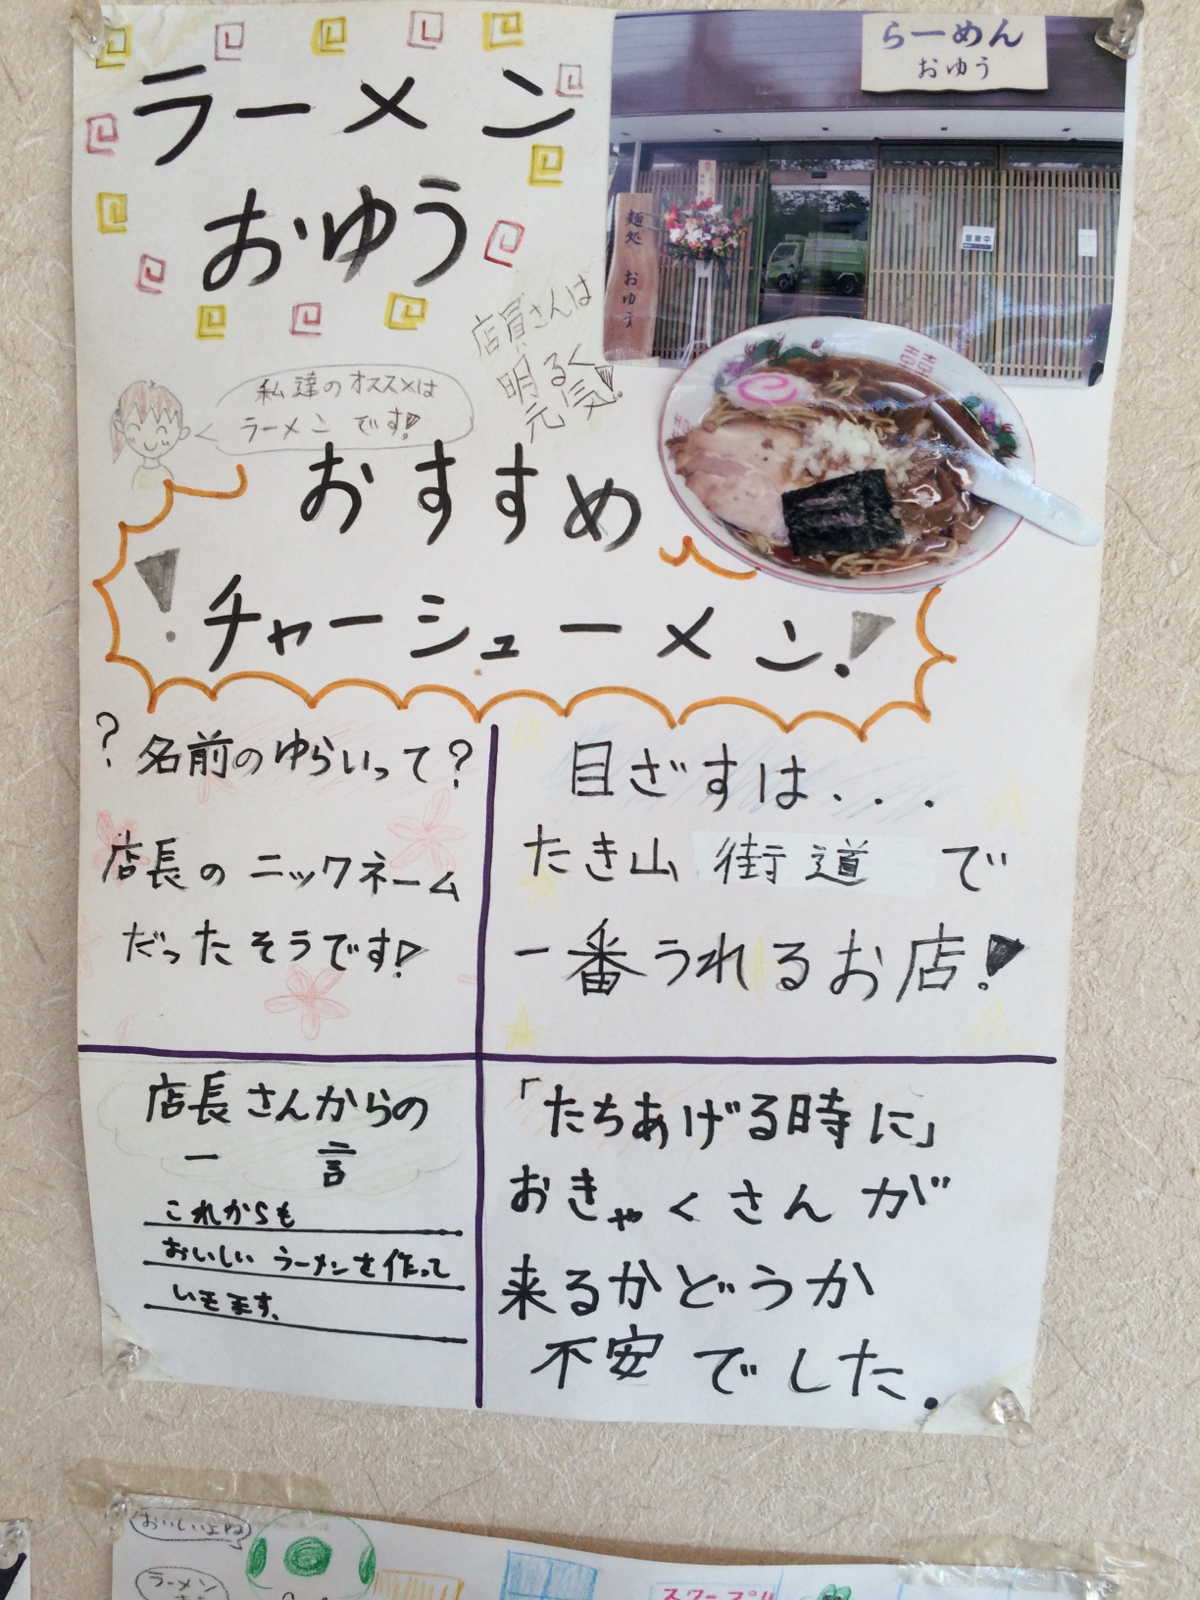 ラーメン
おゆう
らーめん
おゆう
麺処 おゆう
営業中
店員さんは
明るく
元気!
私達のオススメは
ラーメンです!
おすすめ
!チャーシューメン!
?名前のゆらいって?
店長のニックネーム
だったそうです!
目ざすは...
たき山街道で
一番うれるお店!
店長さんからの
一言
これからも
おいしいラーメンを作って
いきます。
「たちあげる時に」
おきゃくさんが
来るかどうか
不安でした.
おいしいよね
ラーメン